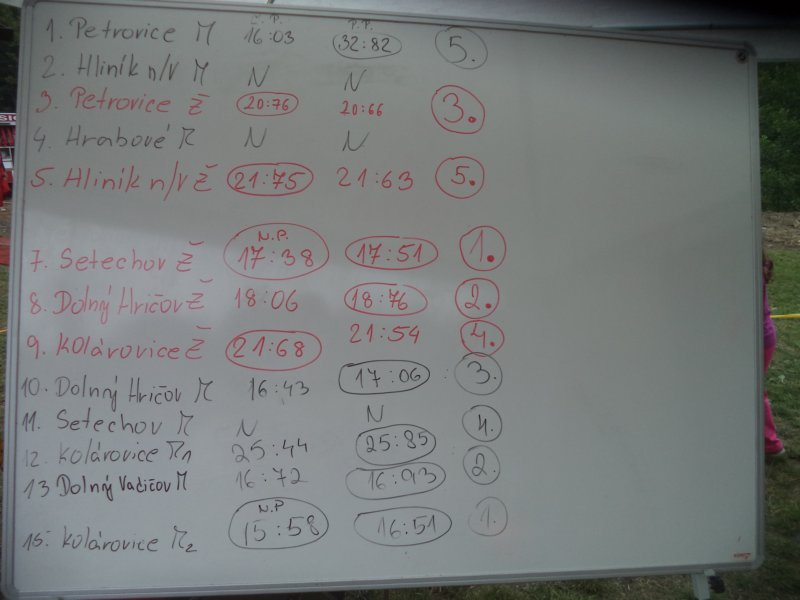 Ľ.P. P.P.
1. Petrovice M 16:03 32:82 5.
2. Hliník n/V M N N
3. Petrovice Ž 20:76 20:66 3.
4. Hrabové M N N
5. Hliník n/V Ž 21:75 21:63 5.
N.P.
7. Setechov Ž 17:38 17:51 1.
8. Dolný Hričov Ž 18:06 18:76 2.
9. Kolárovice Ž 21:68 21:54 4.
10. Dolný Hričov M 16:43 17:06 3.
11. Setechov M N N
12. Kolárovice M1 25:44 25:85 4.
13 Dolný Vadičov M 16:72 16:93 2.
N.P
15. Kolárovice M2 15:58 16:51 1.